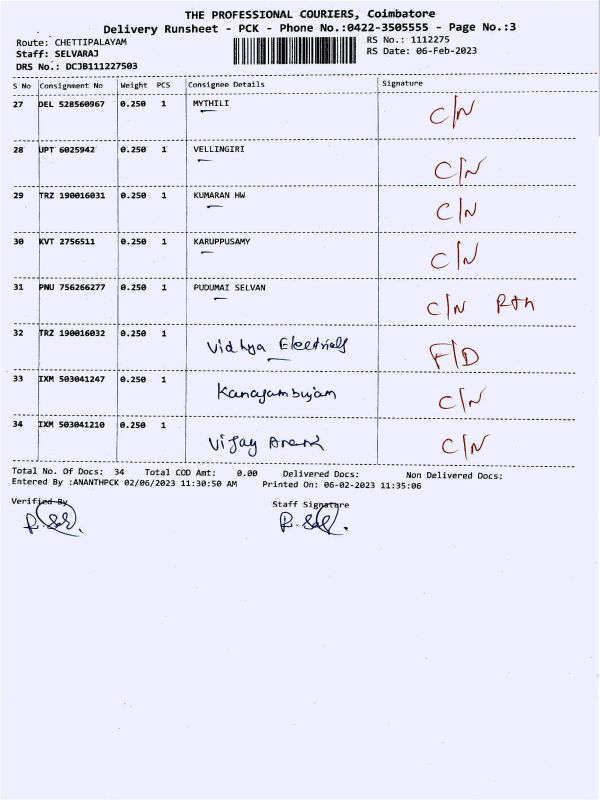 THE PROFESSIONAL COURIERS, Coimbatore
Delivery Runsheet - PCK - Phone No.:0422-3505555 - Page No.:3
Route: CHETTIPALAYAM RS No.: 1112275
Staff: SELVARAJ RS Date: 06-Feb-2023
DRS No.: DCJB111227503
S No Consignment No Weight PCS Consignee Details Signature
27 DEL 528560967 0.250 1 MYTHILI C/N
28 UPT 6025942 0.250 1 VELLINGIRI C/N
29 TRZ 190016031 0.250 1 KUMARAN HW C/N
30 KVT 2756511 0.250 1 KARUPPUSAMY C/N
31 PNU 756266277 0.250 1 PUDUMAI SELVAN C/N Rtn
32 TRZ 190016032 0.250 1 Vidhya Electrials F/D
33 IXM 503041247 0.250 1 Kanagambujam C/N
34 IXM 503041210 0.250 1 Vijay Anand C/N
Total No. Of Docs: 34 Total COD Amt: 0.00 Delivered Docs: Non Delivered Docs:
Entered By :ANANTHPCK 02/06/2023 11:30:50 AM Printed On: 06-02-2023 11:35:06
Verified By Staff Signature